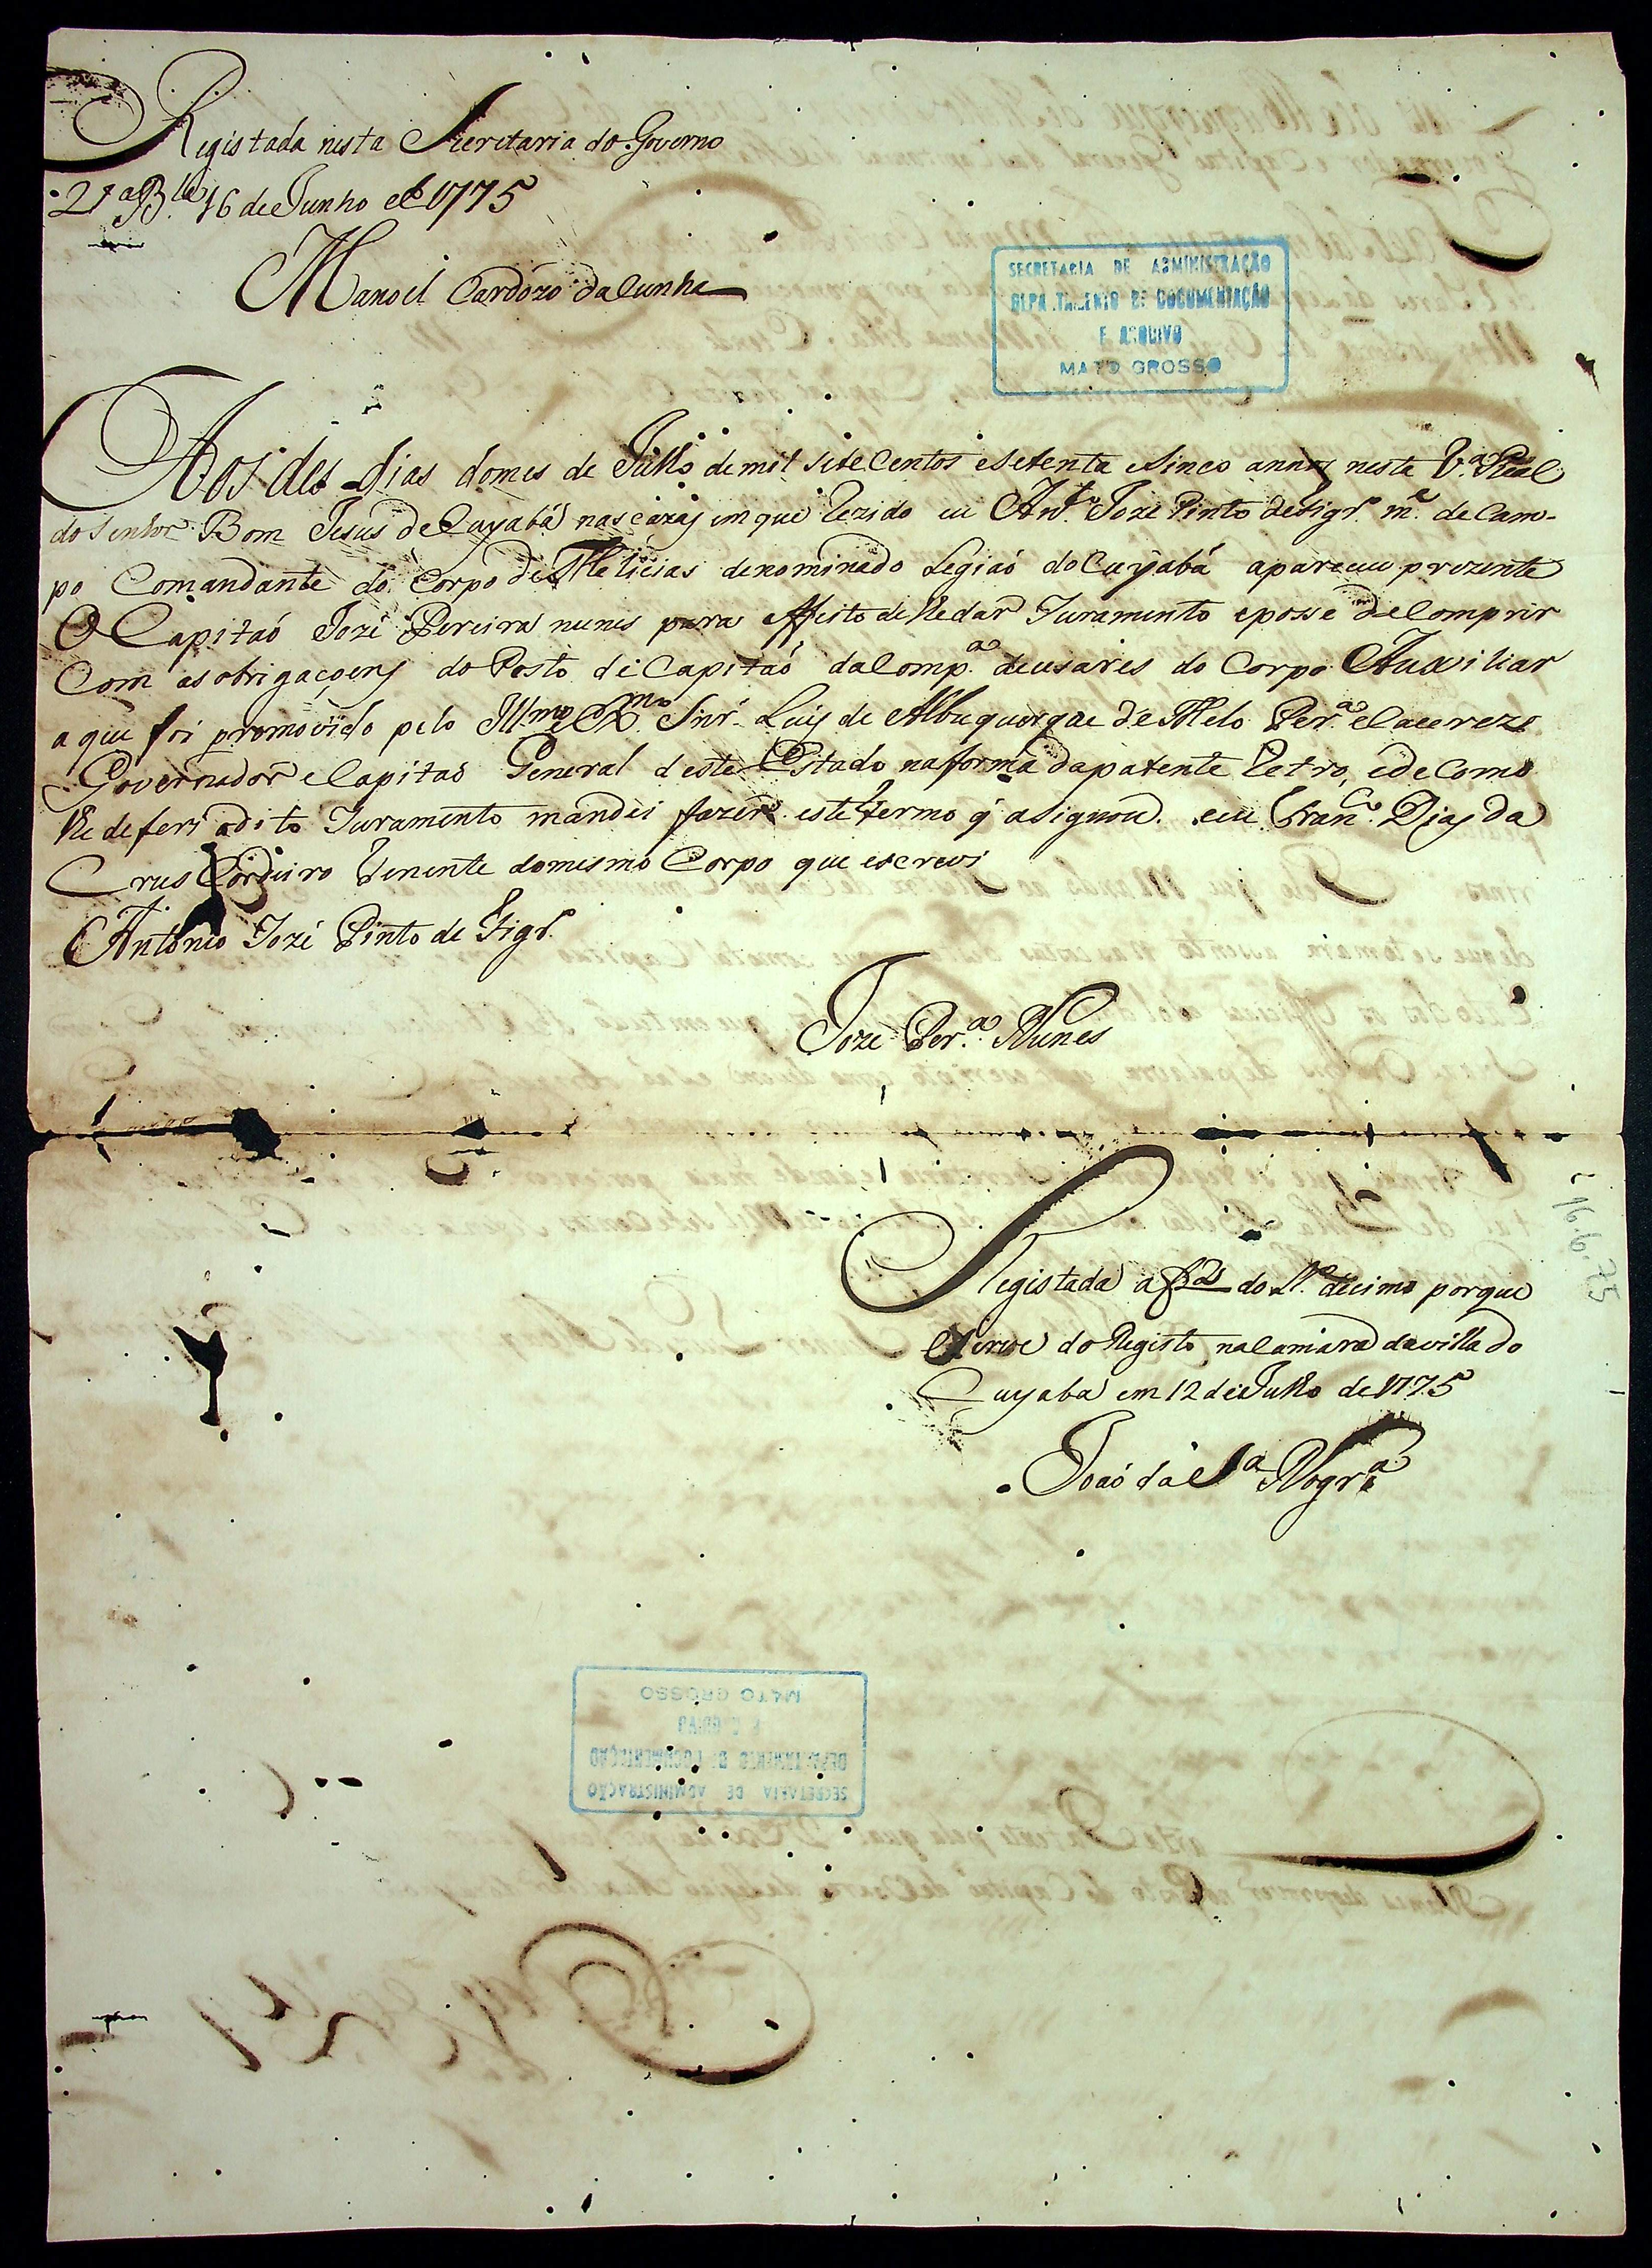 Registada nesta Secretaria do Governo
V.ª B.la 16 de Junho de 1775
Manoel Cardozo da Cunha
SECRETARIA DE ADMINISTRAÇÃO
DEPARTAMENTO DE DOCUMENTAÇÃO
E ARQUIVO
MATO GROSSO
Aos des dias do mes de Julho de mil sete Centos e setenta e sinco annos nesta V.ª Real
do Senhor Bom Jesus de Cuyabá nas cazas em que Rezido eu Ant.º Joze Pinto de Figr.do m.e de Cam-
po Comandante do Corpo de Melicias denominado Legiaó do Cuyabá apareceu prezente
O Capitaó Joze Pereira nunes para effeito de lhe dar Juramento e posse de Comprir
Com as obrigaçoens do Posto de Capitaó da Comp.ª de usares do Corpo Auxiliar
a que foi promovido pelo Ill.mo e Ex.mo Snr. Luis de Albuquerque de Mello Per.ª e Caceres
Governador e Capitaó General deste Estado na forma da patente Retro, e de Como
lhe deferi o dito Juramento mandei fazer este termo q asignou. eu Fran.co Dias da
Crus Cordeiro Tenente do mesmo Corpo que escrevi
Antonio Joze Pinto de Figr.do
Joze Per.ª Nunes
Registada a f do L.º decimo porque
serve do Registo na Camara da villa do
Cuyaba em 12 de Julho de 1775
Joaó da S.ª Nogr.ª
16.6.75
SECRETARIA DE ADMINISTRAÇÃO
DEPARTAMENTO DE DOCUMENTAÇÃO
E ARQUIVO
MATO GROSSO